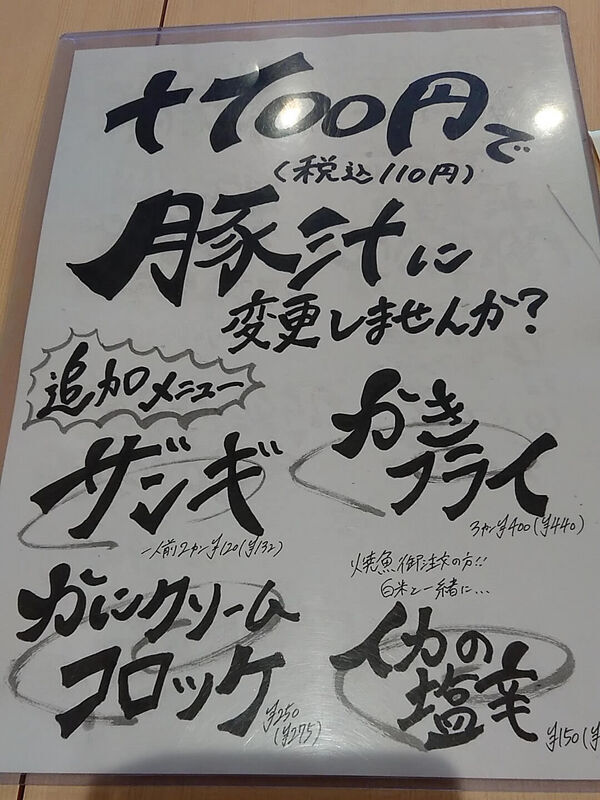 +100円で
(税込110円)
豚汁に
変更しませんか?
追加メニュー
ザンギ
一人前2ヶ ¥120(¥132)
かき
フライ
3ヶ ¥400(¥440)
かにクリーム
コロッケ
¥250
(¥275)
焼魚御注文の方!!
白米と一緒に...
イカの
塩辛
¥150(¥